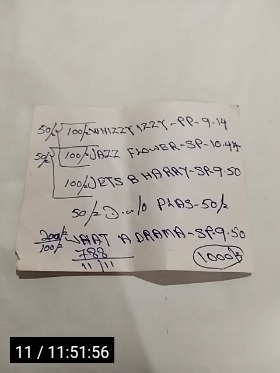 50/2 100/2 WHIZZY IZZY-PP-9.14
50/2 100/2 JAZZ FLOWER-SP-10.44
100/2 JETS B HARRY-SP-9.50
50/2 D. PLAS-50/2
200/2 WHAT A DRAMA-SP-9.50
100/2 788 1000
11/11
11 / 11:51:56